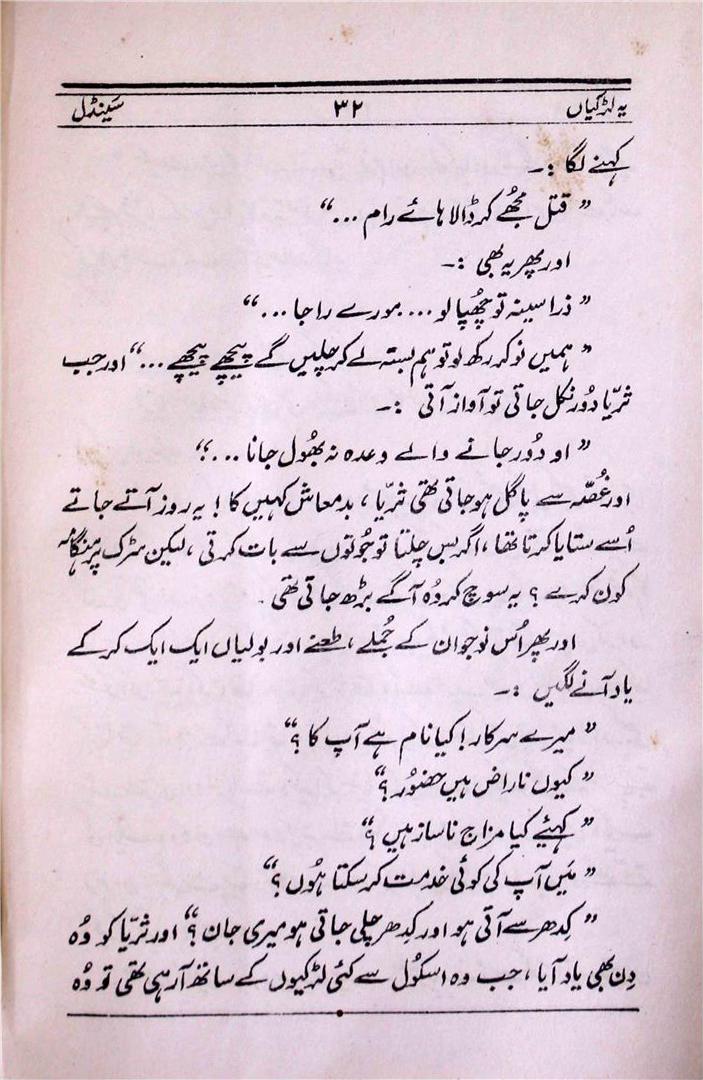 یہ لڑکیاں ۳۲ سینڈل
کہنے لگا :۔
” قتل مجھے کر ڈالا ہائے رام ...“
اور پھر یہ بھی :۔
” ذرا سینہ تو چھُپا لو ... مورے راجا ...“
” ہمیں نوکر رکھ لو تو ہم بستہ لے کر چلیں گے پیچھے پیچھے ...“ اور جب
ثریّا دُور نکل جاتی تو آواز آتی :۔
” او دُور جانے والے وعدہ نہ بھُول جانا ...“
اور غُصّہ سے پاگل ہو جاتی تھی ثریّا ، بدمعاش کہیں کا ! یہ روز آتے جاتے
اُسے ستایا کرتا تھا ، اگر بس چلتا تو جُوتوں سے بات کرتی ، لیکن سڑک پر ہنگامہ
کون کرے ؟ یہ سوچ کر وُہ آگے بڑھ جاتی تھی ۔
اور پھر اُس نوجوان کے جُملے ، طعنے اور بولیاں ایک ایک کر کے
یاد آنے لگیں :۔
” میرے سرکار ! کیا نام ہے آپ کا ؟“
” کیوں ناراض ہیں حضُور ؟“
” کہئیے کیا مزاج ناساز ہیں ؟“
” مَیں آپ کی کوئی خدمت کر سکتا ہُوں ؟“
” کِدھر سے آتی ہو اور کِدھر چلی جاتی ہو میری جان ؟“ اور ثریّا کو وُہ
دِن بھی یاد آیا ، جب وہ اسکُول سے کئی لڑکیوں کے ساتھ آ رہی تھی تو وُہ